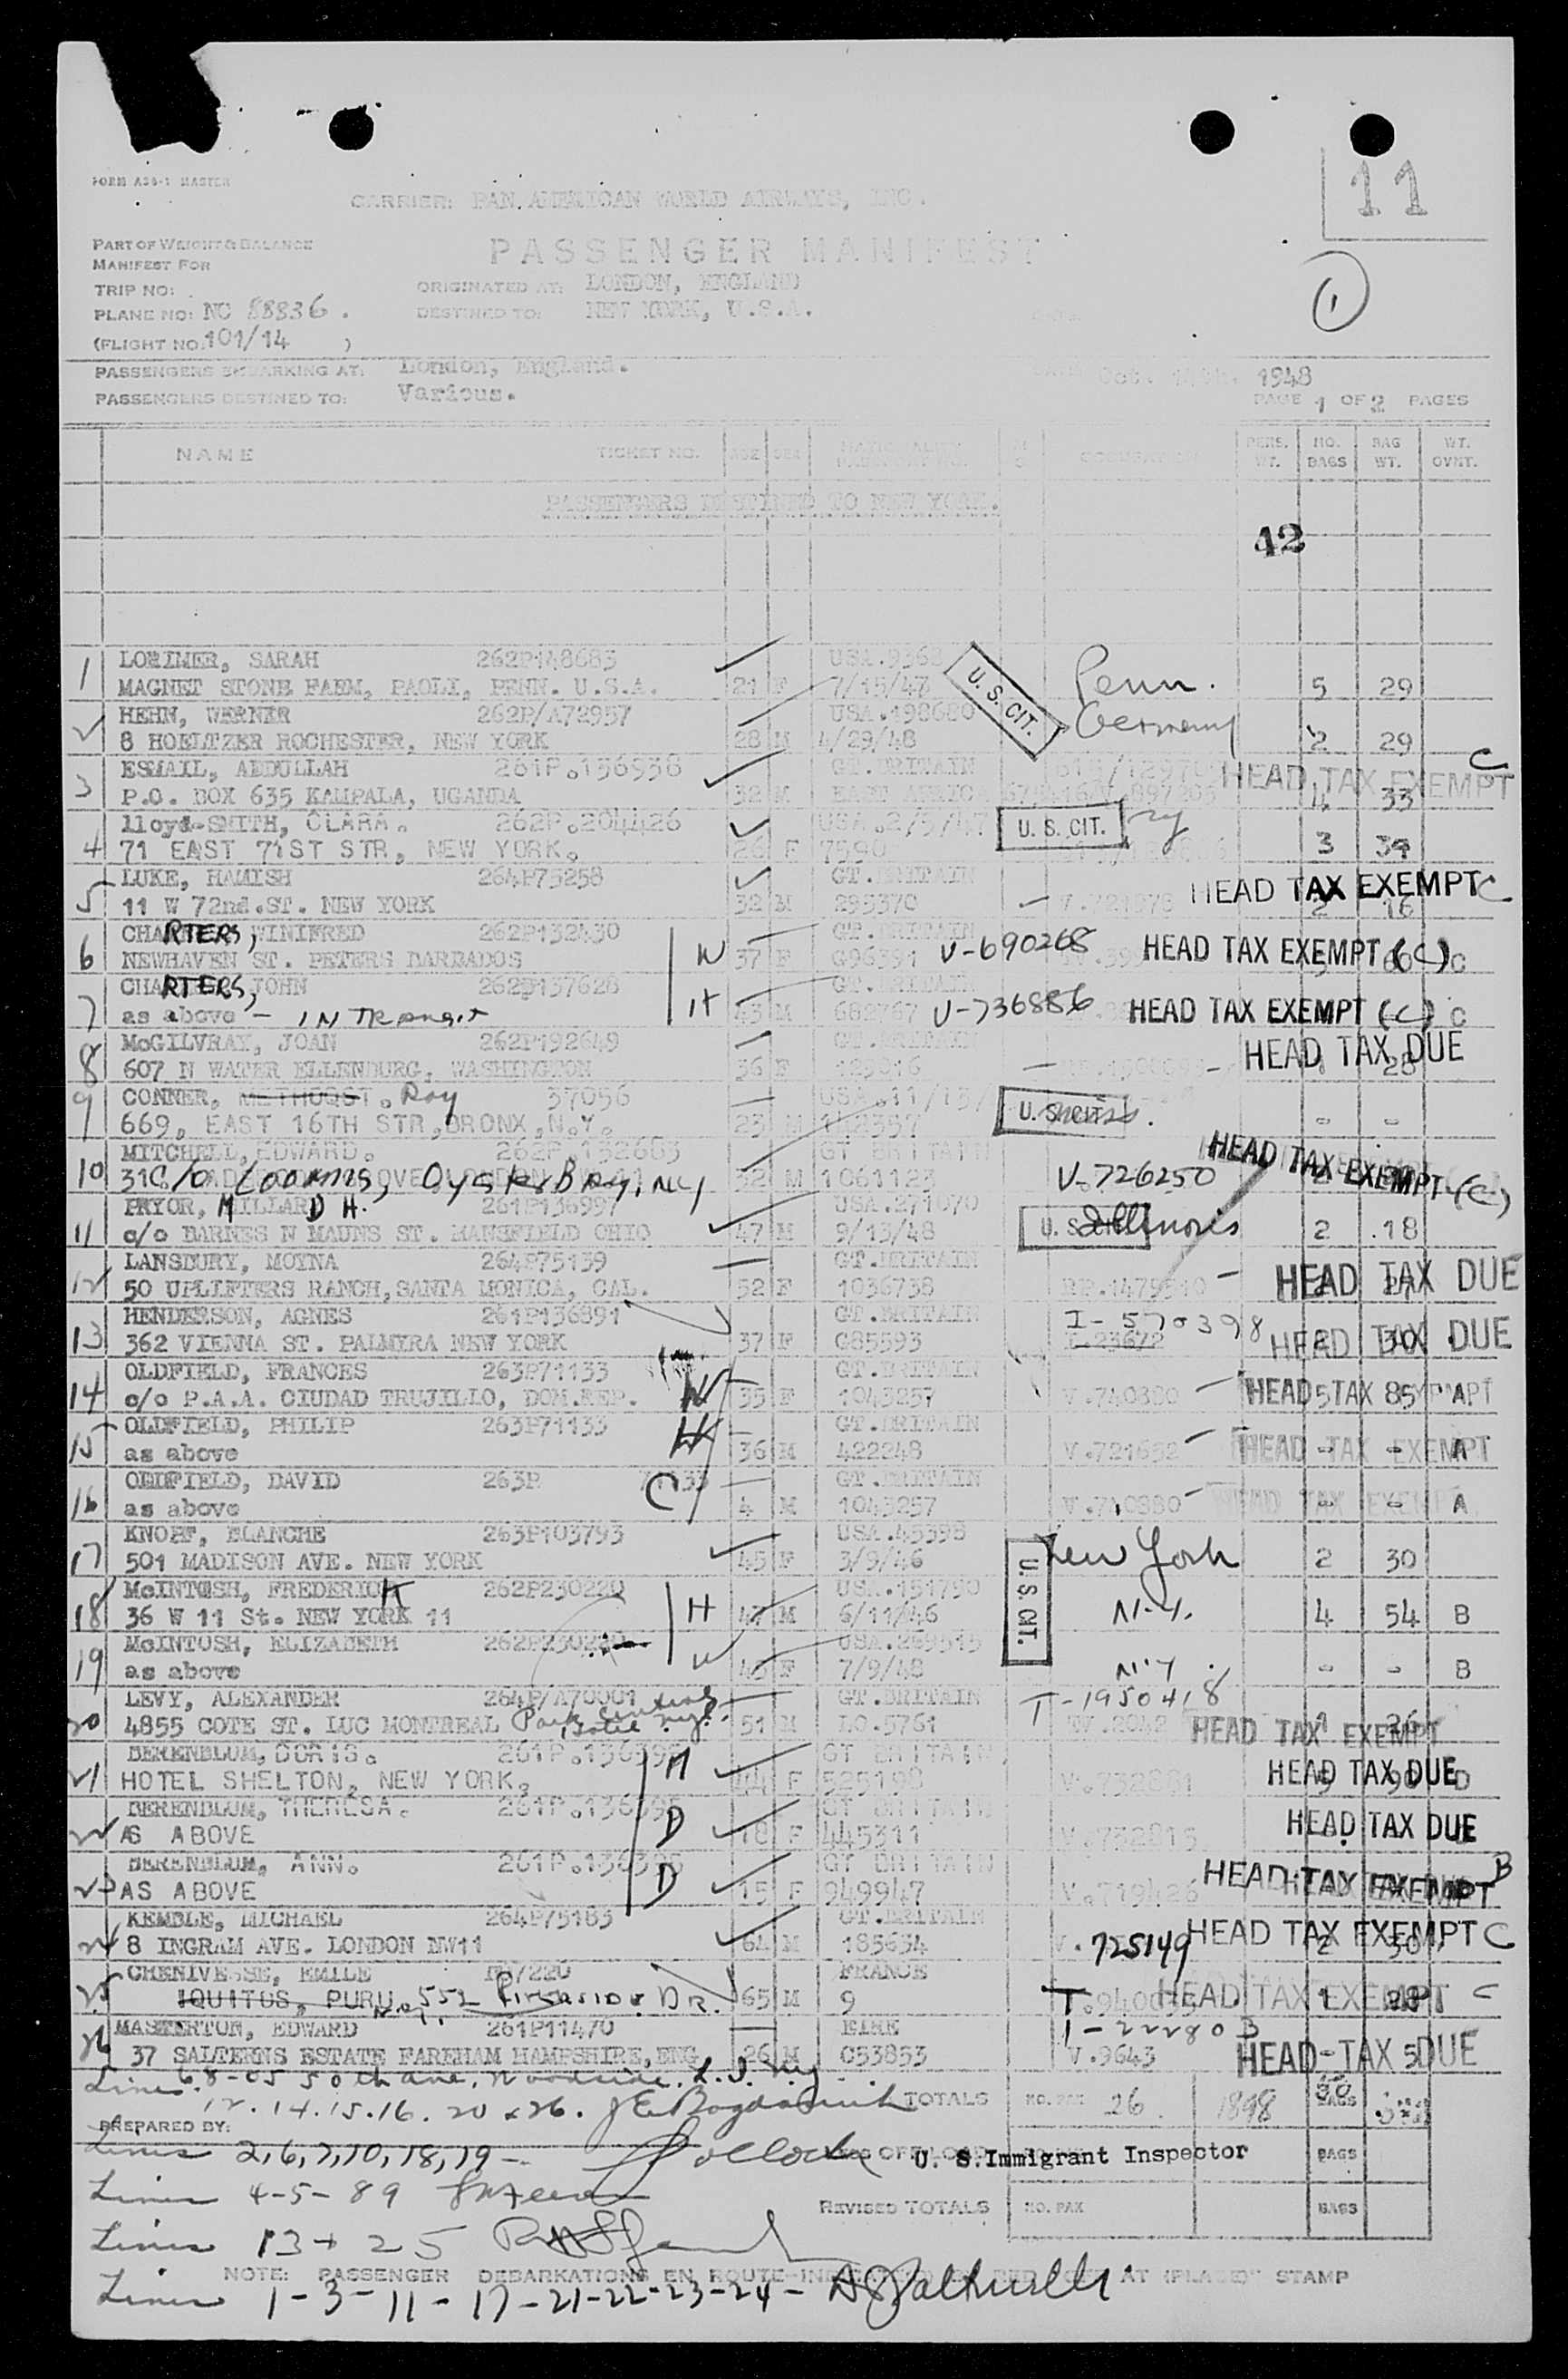 FORM A38-1 MASTER
11
CARRIER: PAN AMERICAN WORLD AIRWAYS, INC.
PART OF WEIGHT & BALANCE
MANIFEST FOR
PASSENGER MANIFEST
1
TRIP NO:
ORIGINATED AT: LONDON, ENGLAND
PLANE NO: NC 88836.
DESTINED TO: NEW YORK, U.S.A.
(FLIGHT NO. 101/14 )
PASSENGERS EMBARKING AT: London, England.
Oct. 1948
PASSENGERS DESTINED TO: Various.
PAGE 1 OF 2 PAGES
NAME TICKET NO. AGE SEX NATIONALITY PERS. WT. NO. BAGS BAG WT. WT. OVNT.
PASSENGERS DESTINED TO NEW YORK.
42
1 LORIMER, SARAH 262P148683 USA.9368
MAGNET STONE FARM, PAOLI, PENN. U.S.A. 21 F 7/15/47 U.S. CIT. Penn. 5 29
2 HEHN, WERNER 262P/A72957 USA.198680
8 HOELTZER ROCHESTER, NEW YORK 28 M 4/29/48 Germany 2 29
3 ESMAIL, ABDULLAH 261P.136938 GT.BRITAIN HEAD TAX EXEMPT C
P.O. BOX 635 KAMPALA, UGANDA 32 M EAST AFRIC 33
4 lloyd-SMITH, CLARA. 262P.204426 USA.2/5/47 U.S. CIT. ny
71 EAST 71ST STR, NEW YORK. 26 F 7590 3 39
5 LUKE, HAMISH 264P75258 GT.BRITAIN HEAD TAX EXEMPT C
11 W 72nd.ST. NEW YORK 32 M 295370 2 16
6 CHARTERS, WINIFRED 262P132430 GT.BRITAIN V-690268 HEAD TAX EXEMPT (C)
NEWHAVEN ST. PETERS BARBADOS W 37 F G96391 60 C
7 CHARTERS, JOHN 262P137628 GT.BRITAIN V-736886 HEAD TAX EXEMPT (C)
as above - IN Transit H 43 M 682767 C
8 McGILVRAY, JOAN 262P192649 GT.BRITAIN HEAD TAX DUE
607 N WATER ELLENBURG, WASHINGTON 36 F 129816 28
9 CONNER, Roy 37056 USA.11/15/ U.S. CIT.
669, EAST 16TH STR, BRONX, N.Y. 23 M 142357 - -
10 MITCHELL, EDWARD. 262P.132663 GT BRITAIN HEAD TAX EXEMPT (C)
C/o Loomis, Oyster Bay, NY 32 M 1061123 V-726250
11 PRYOR, MILLARD H. 261P136997 USA.271070
c/o BARNES N MAUNS ST. MANSFIELD OHIO 47 M 9/13/48 U.S. CIT. Illinois 2 18
12 LANSBURY, MOYNA 264P75139 GT.BRITAIN HEAD TAX DUE
50 UPLIFTERS RANCH, SANTA MONICA, CAL. 52 F 1036738 RP.1479510
13 HENDERSON, AGNES 261P136891 GT.BRITAIN I-570398
362 VIENNA ST. PALMYRA NEW YORK 37 F C85593 I.23672 HEAD TAX DUE 2 30
14 OLDFIELD, FRANCES 263P71133 GT.BRITAIN
c/o P.A.A. CIUDAD TRUJILLO, DOM.REP. W 35 F 1043257 V.740880 HEAD TAX EXEMPT 5 85 A
15 OLDFIELD, PHILIP 263P71133 GT.BRITAIN
as above H 36 M 422248 V.721652 HEAD TAX EXEMPT - - A
16 OLDFIELD, DAVID 263P 71133 GT.BRITAIN
as above C 4 M 1043257 V.740880 HEAD TAX EXEMPT - - A
17 KNOPF, BLANCHE 263P103793 USA.45398
501 MADISON AVE. NEW YORK 45 F 3/9/46 U.S. CIT. New York 2 30
18 McINTOSH, FREDERICK 262P230220 USA.151790
36 W 11 St. NEW YORK 11 H 47 M 6/11/46 N.Y. 4 54 B
19 McINTOSH, ELIZABETH 262P230220 USA.269515
as above W 45 F 7/9/48 N.Y. - - B
20 LEVY, ALEXANDER 264P/A70001 GT.BRITAIN T-1950418
4855 COTE ST. LUC MONTREAL Park Central Hotel N.Y. 51 M LO.5761 HEAD TAX EXEMPT 26
21 BERENBLUM, DORIS. 261P.136395 GT BRITAIN
HOTEL SHELTON, NEW YORK, M 44 F 525198 V.732881 HEAD TAX DUE 90 D
22 BERENBLUM, THERESA. 261P.136395 GT BRITAIN HEAD TAX DUE
AS ABOVE D 18 F 445311 V.732815
23 BERENBLUM, ANN. 261P.136395 GT BRITAIN HEAD TAX EXEMPT B
AS ABOVE D 15 F 949947 V.719426
24 KEMBLE, MICHAEL 264P75183 GT.BRITAIN HEAD TAX EXEMPT C
8 INGRAM AVE. LONDON NW11 64 M 185634 V.725149 2 30
25 CHENIVESSE, EMILE FR7220 FRANCE
IQUITOS, PURU N.Y. 552 Riverside DR. 65 M 9 HEAD TAX EXEMPT C 1 28
26 MASTERTON, EDWARD 261P11470 EIRE T-222803
37 SALTERNS ESTATE FAREHAM HAMPSHIRE, ENG 26 M C53853 V.9643 HEAD TAX DUE
68-05 50th ave. Woodside. L.I. N.Y.
Lines 12.14.15.16.20 & 26.
TOTALS NO. PAX 26 1898 30 BAGS
PREPARED BY:
Lines 2,6,7,10,18,19 - Pollock U. S. Immigrant Inspector BAGS
Lines 4-5-89
REVISED TOTALS NO. PAX BAGS
Lines 13 + 25
NOTE: PASSENGER DEBARKATIONS EN ROUTE AT (PLACE)" STAMP
Lines 1-3-11-17-21-22-23-24-